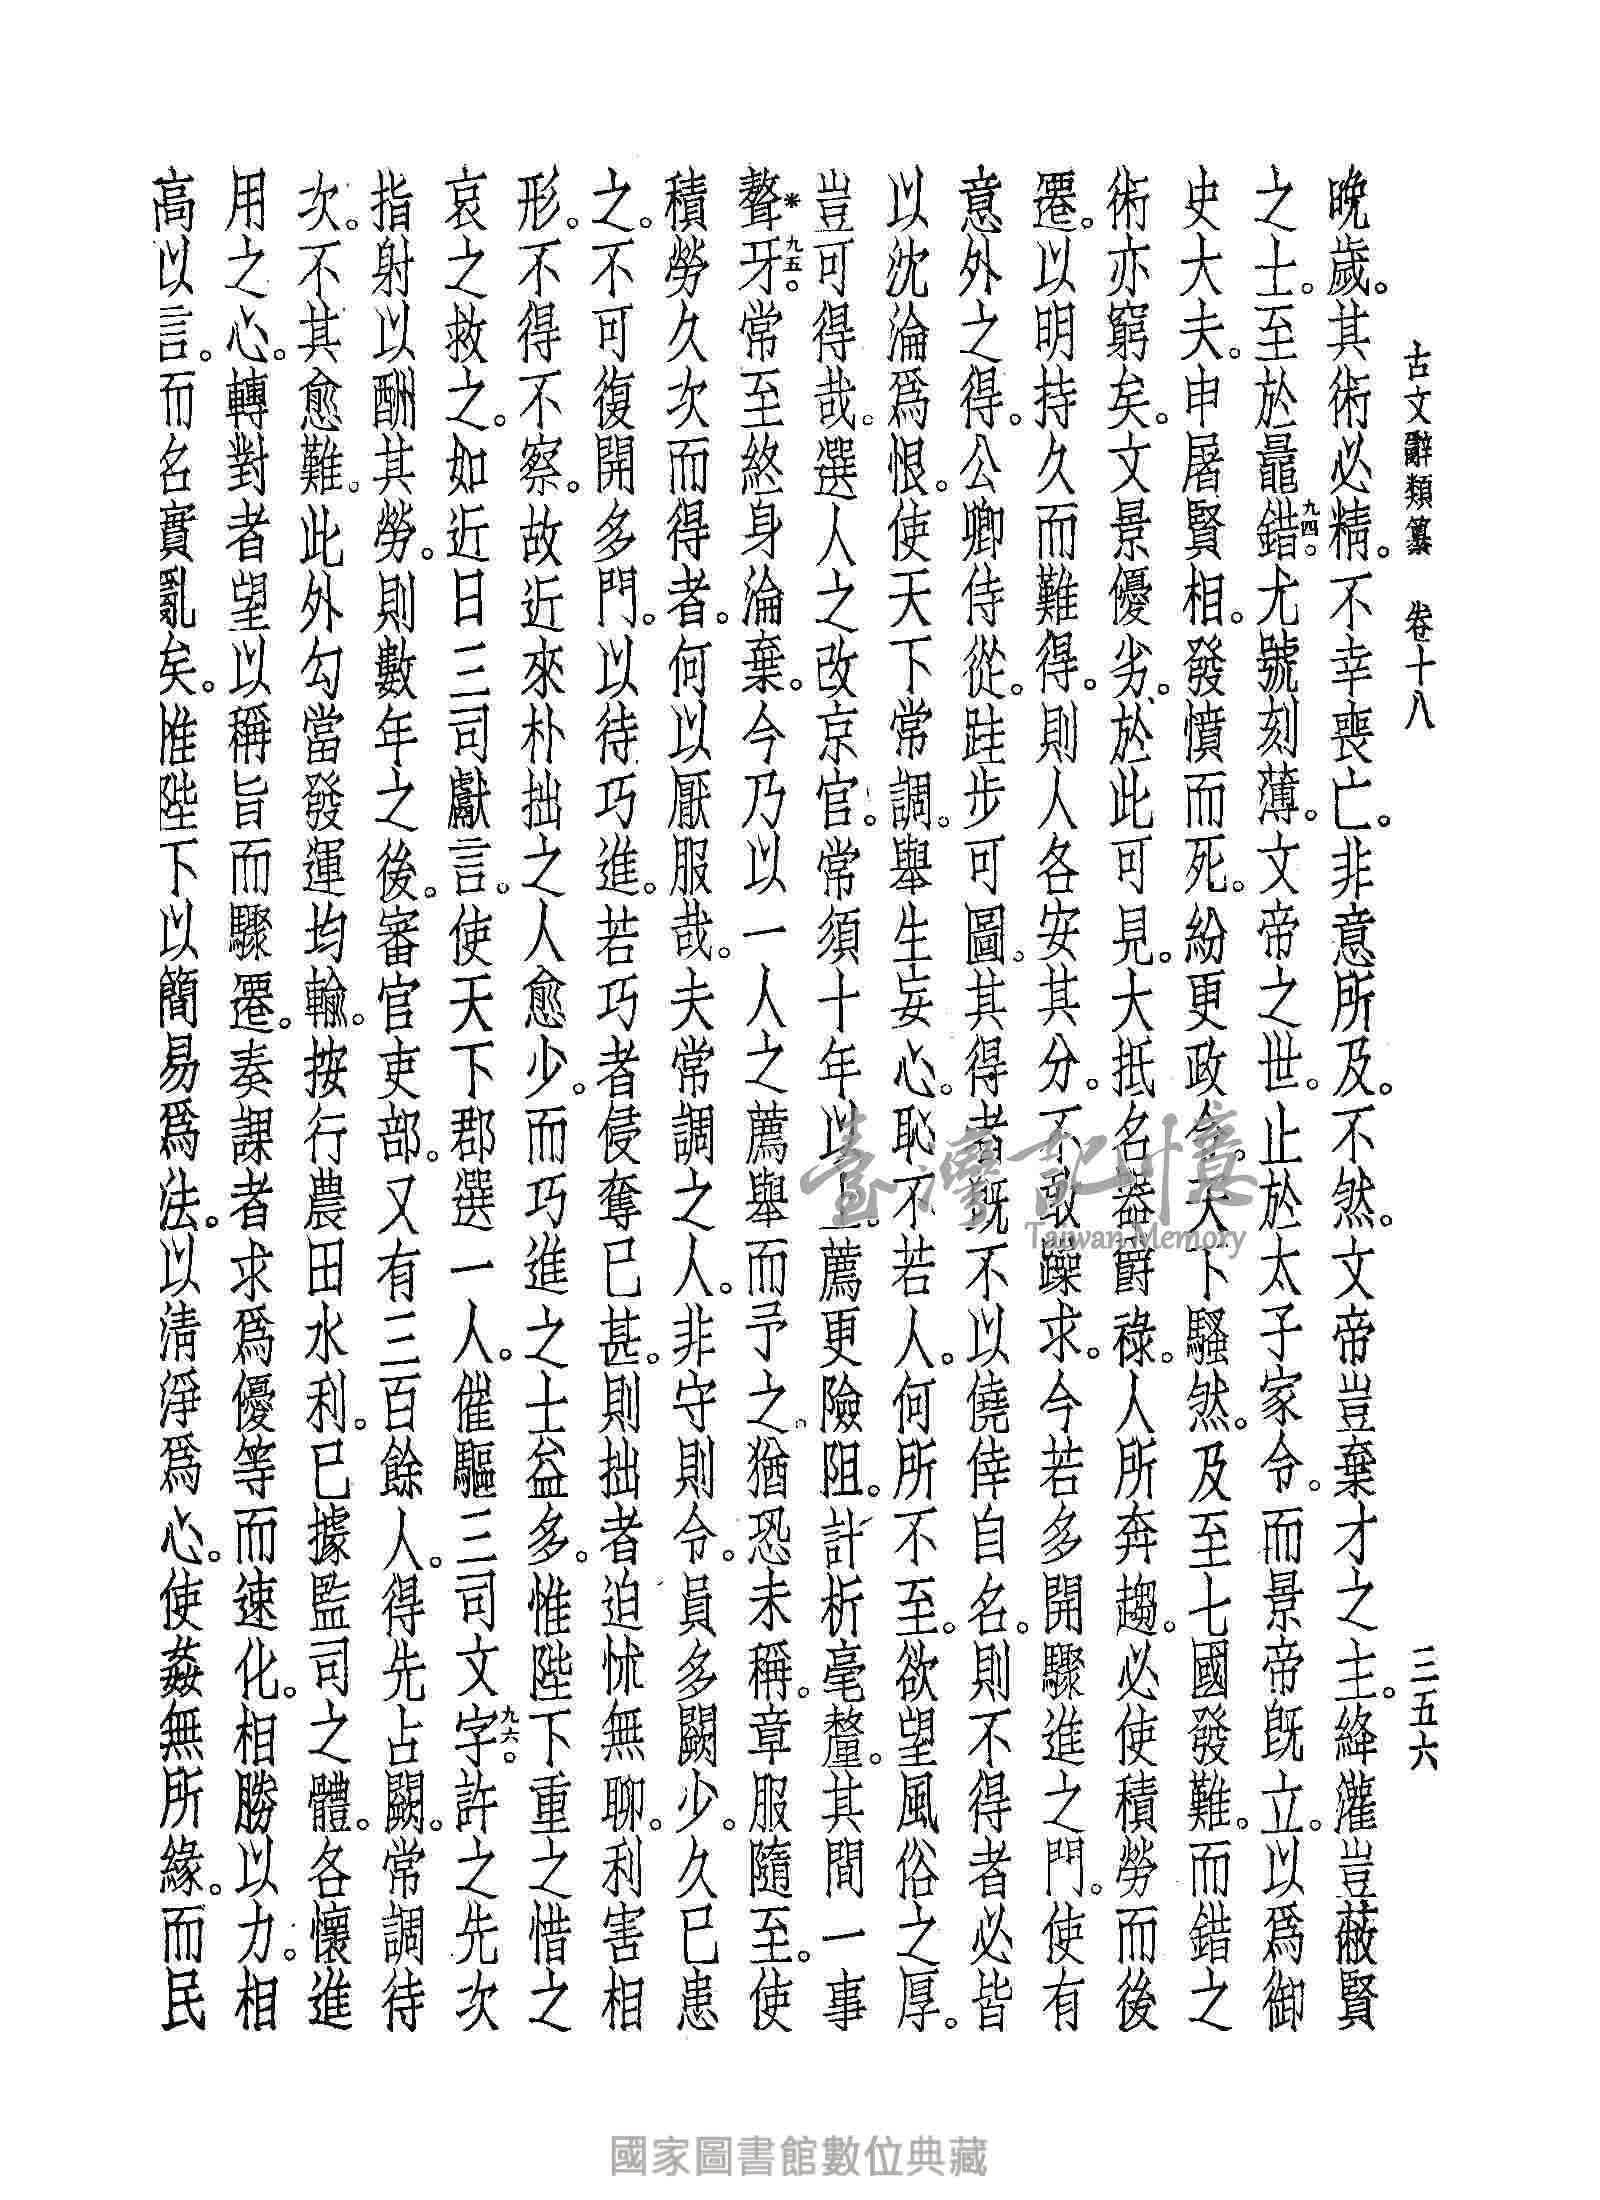 古文辭類纂　卷十八　三五六
晚歲。其術必精。不幸喪亡。非意所及。不然。文帝豈棄才之主。絳灌豈蔽賢
之士。至於鼂錯九四。尤號刻薄。文帝之世。止於太子家令。而景帝旣立。以爲御
史大夫。申屠賢相。發憤而死。紛更政令。天下騷然。及至七國發難。而錯之
術亦窮矣。文景優劣。於此可見。大抵名器爵祿。人所奔趨。必使積勞而後
遷。以明持久而難得。則人各安其分。不敢躁求。今若多開驟進之門。使有
意外之得。公卿侍從。跬步可圖。其得者旣不以僥倖自名。則不得者必皆
以沈淪爲恨。使天下常調。舉生妄心。恥不若人。何所不至。欲望風俗之厚。
豈可得哉。選人之改京官。常須十年以上。薦更險阻。計析毫釐。其間一事
聱*牙九五。常至終身淪棄。今乃以一人之薦舉而予之。猶恐未稱。章服隨至。使
積勞久次而得者。何以厭服哉。夫常調之人。非守則令。員多闕少。久已患
之。不可復開多門。以待巧進。若巧者侵奪已甚。則拙者迫怵無聊。利害相
形。不得不察。故近來朴拙之人愈少。而巧進之士益多。惟陛下重之惜之
哀之救之。如近日三司獻言。使天下郡選一人。催驅三司文字九六。許之先次
指射以酬其勞。則數年之後。審官吏部。又有三百餘人。得先占闕。常調待
次。不其愈難。此外勾當發運均輸。按行農田水利。已據監司之體。各懷進
用之心。轉對者望以稱旨而驟遷。奏課者求爲優等而速化。相勝以力。相
高以言。而名實亂矣。惟陛下以簡易爲法。以淸淨爲心。使姦無所緣。而民
臺灣記憶
Taiwan Memory
國家圖書館數位典藏